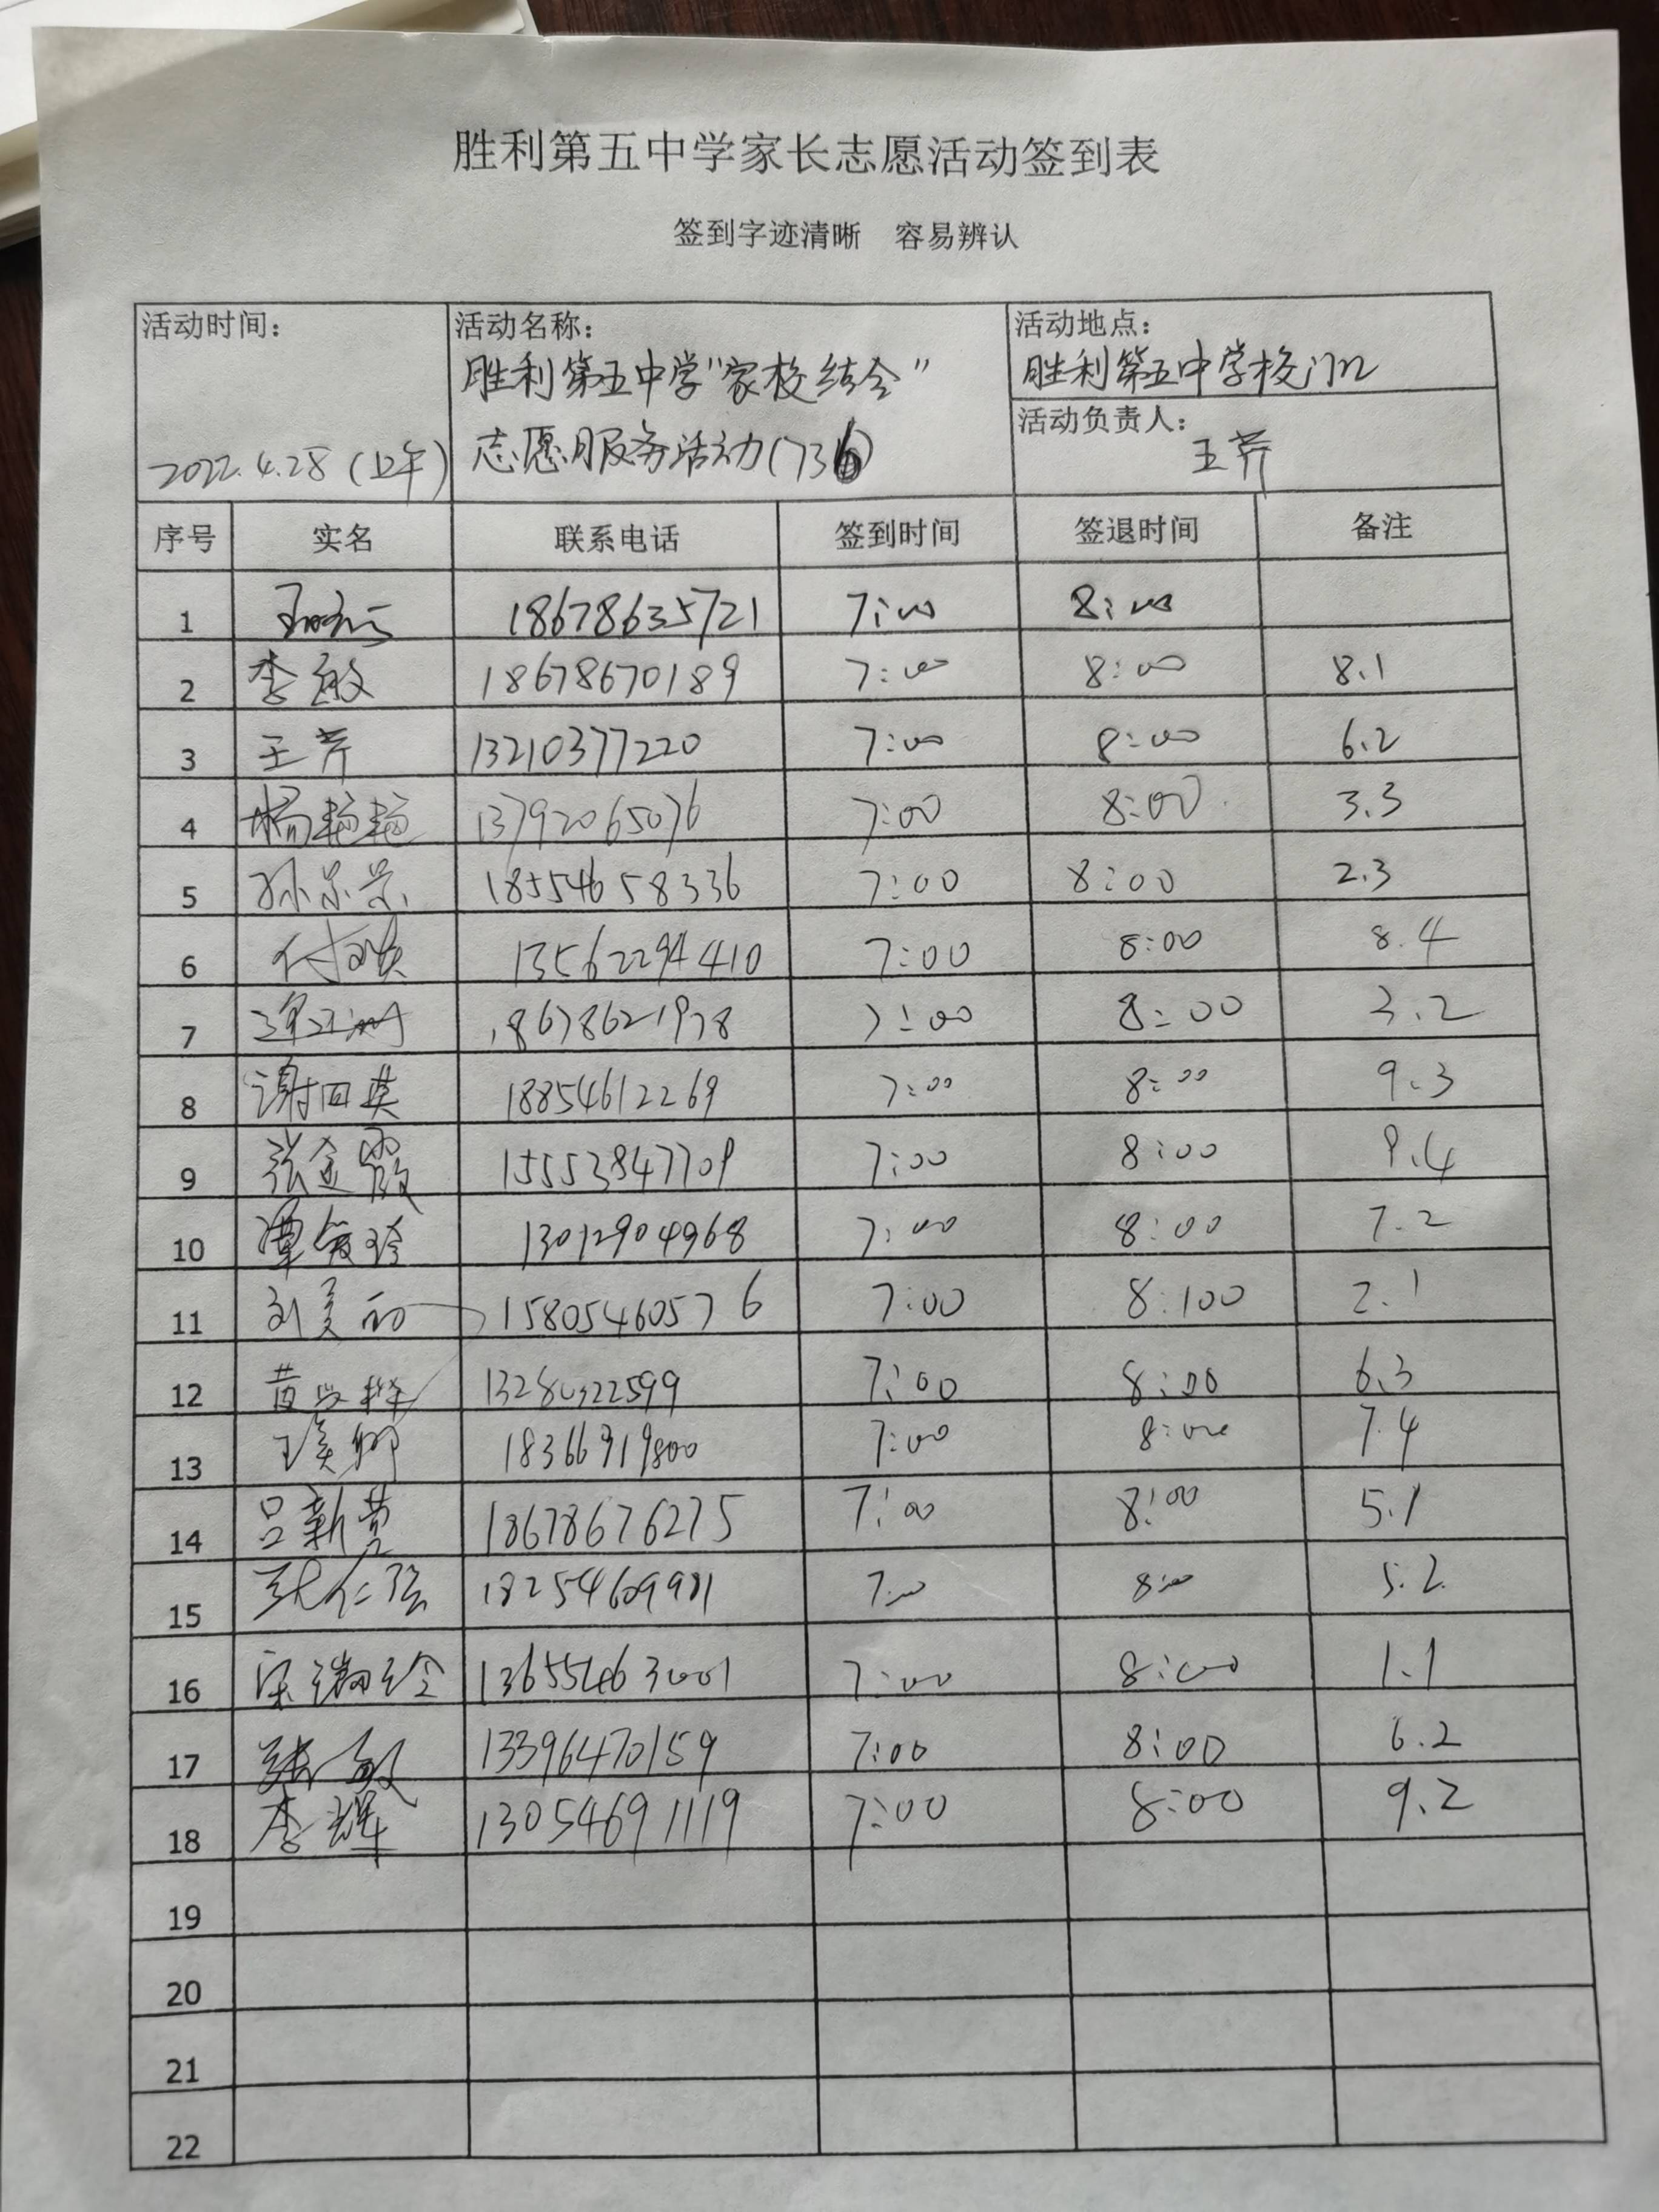 胜利第五中学家长志愿活动签到表
签到字迹清晰 容易辨认
活动时间： 活动名称： 活动地点：
胜利第五中学"家校结合" 胜利第五中学校门口
活动负责人：
2022.4.28(上午) 志愿服务活动(736) 王芹
序号 实名 联系电话 签到时间 签退时间 备注
1 18678635721 7:00 8:00
2 李敏 18678670189 7:00 8:00 8.1
3 王芹 13210377220 7:00 8:00 6.2
4 杨艳艳 13792065076 7:00 8:00 3.3
5 18554658336 7:00 8:00 2.3
6 13562294410 7:00 8:00 8.4
7 18678621978 7:00 8:00 3.2
8 谢回英 18854612269 7:00 8:00 9.3
9 张金霞 15553847709 7:00 8:00 9.4
10 13012904968 7:00 8:00 7.2
11 15805460576 7:00 8:100 2.1
12 7:00 8:00 6.3
13 18366919800 7:00 8:00 7.4
14 吕新莹 18678676275 7:00 8:00 5.1
15 7:00 8:00 5.2
16 宋瑞玲 13655463001 7:00 8:00 1.1
17 张敏 13396470159 7:00 8:00 6.2
18 李辉 13054691119 7:00 8:00 9.2
19
20
21
22